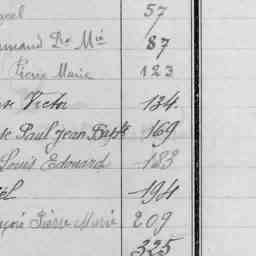 57
Dr Mie 87
Pierre Marie 123
Victor 134
Paul Jean Bapte 169
Louis Edouard 183
194
Pierre Marie 209
325